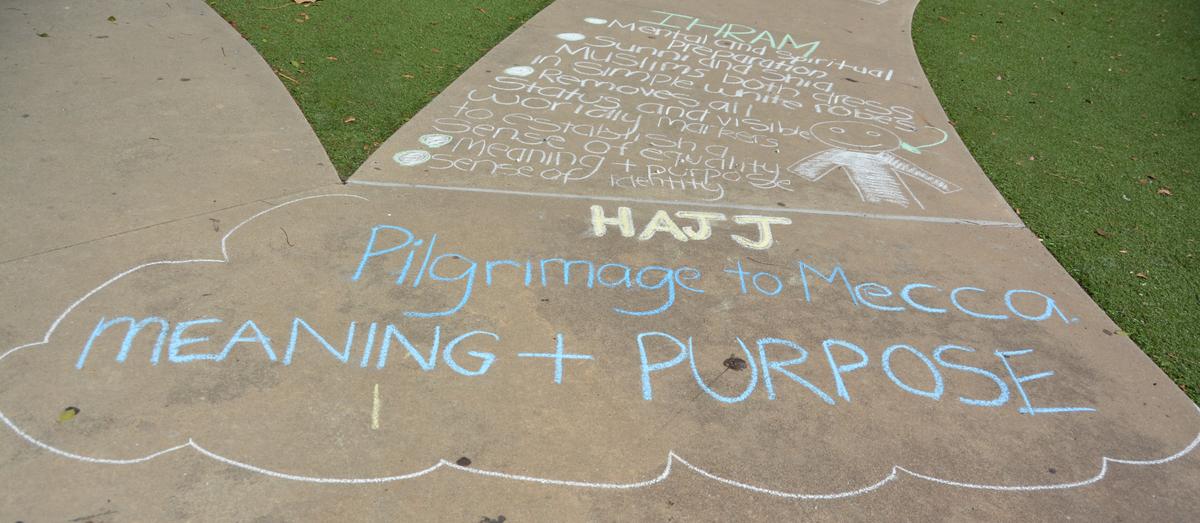 IHRAM
Mental and spiritual
preparation
Sunni and Shia
Muslims both dress
in simple white robes
Removes all
Status and visible
worldly markers
to establish a
sense of equality
Meaning + purpose
sense of identity
HAJJ
Pilgrimage to Mecca.
MEANING + PURPOSE